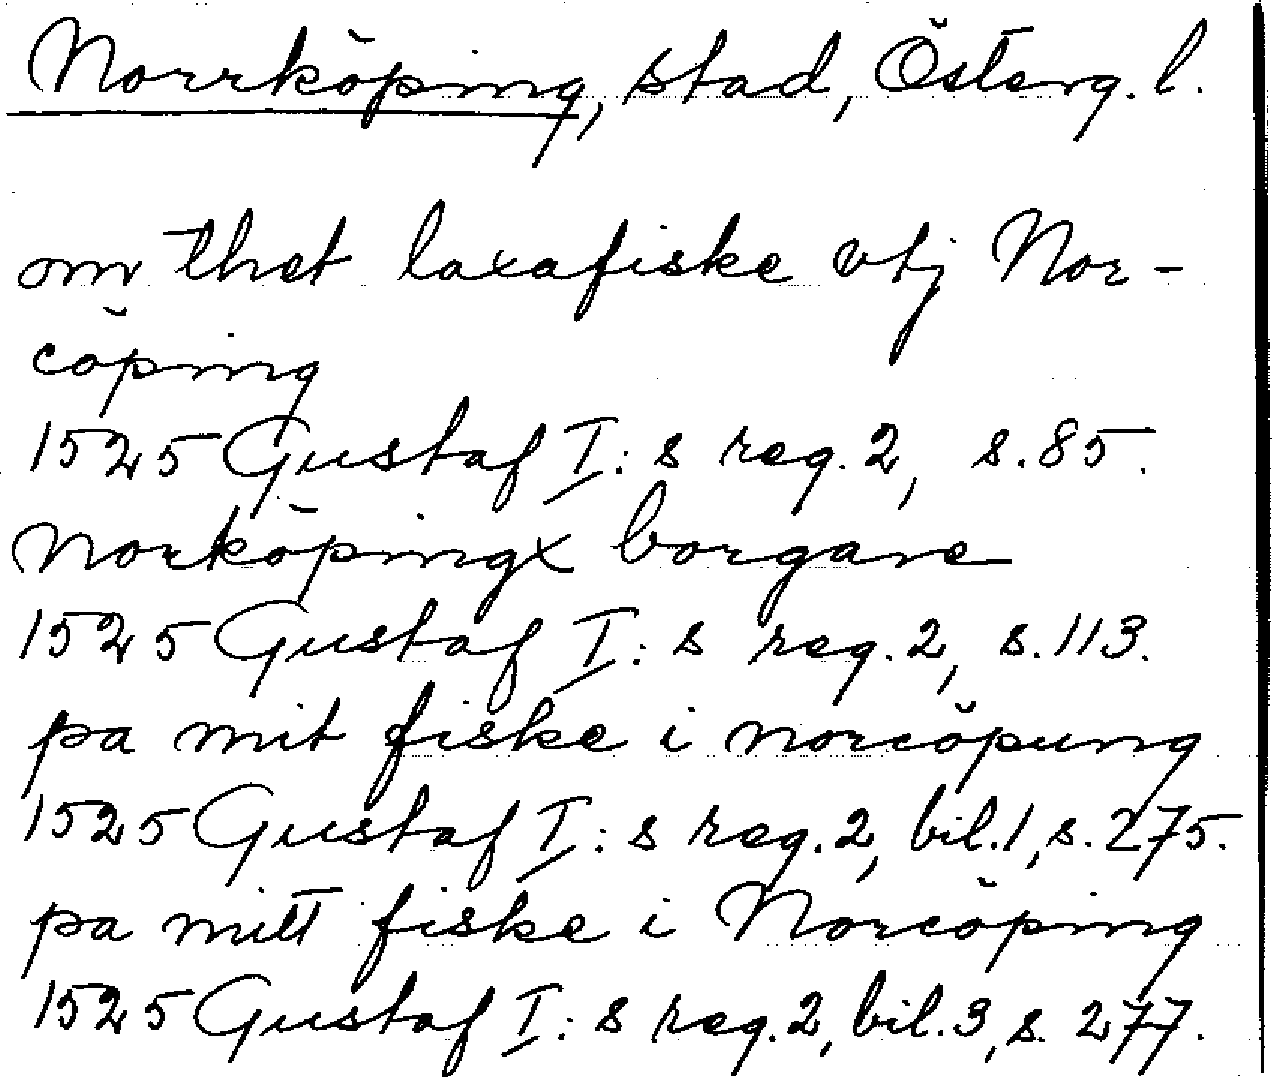 Norrköping, stad, Österg. l.
om thet laxafiske vtj Nor-
cöping
1525 Gustaf I:s reg. 2, s. 85.
Norköpingx borgare
1525 Gustaf I:s reg. 2, s. 113.
pa mit fiske i norcöpung
1525 Gustaf I:s reg. 2, bil. 1, s. 275.
pa mitt fiske i Norcöping
1525 Gustaf I:s reg. 2, bil. 3, s. 277.